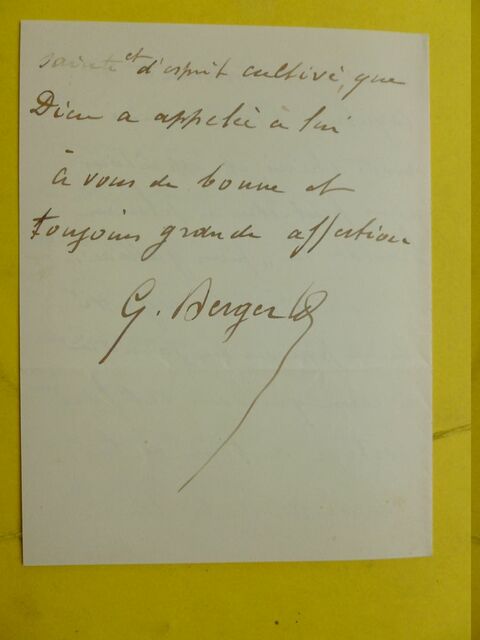 sainte et d'esprit cultivé, que
Dieu a appelée à lui
à vous de bonne et
toujours grande affection
G. Berger